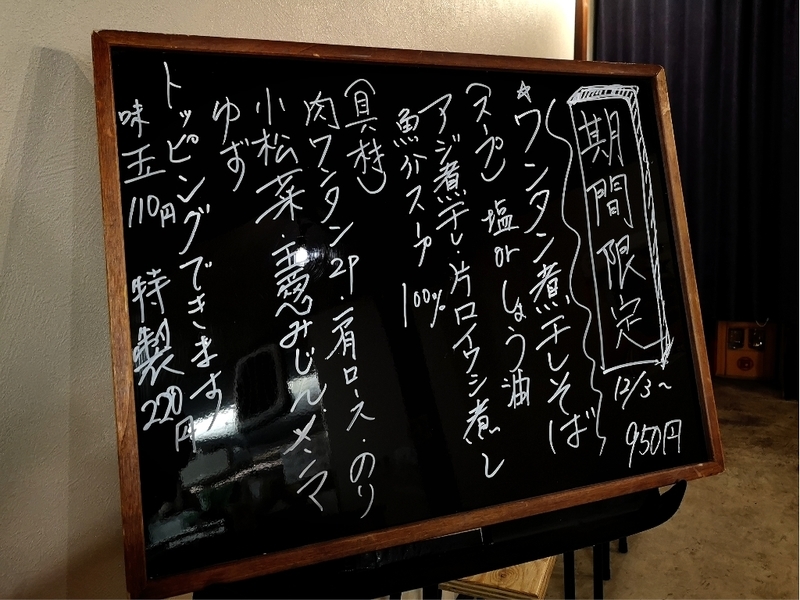 期間限定
12/3~
950円
☆ワンタン煮干しそば
(スープ) 塩orしょう油
アジ煮干し・片口イワシ煮干し
魚介スープ 100%
(具材)
肉ワンタン2P・肩ロース・のり
小松菜・玉葱みじん・メンマ
ゆず
トッピングできます
味玉110円 特製220円